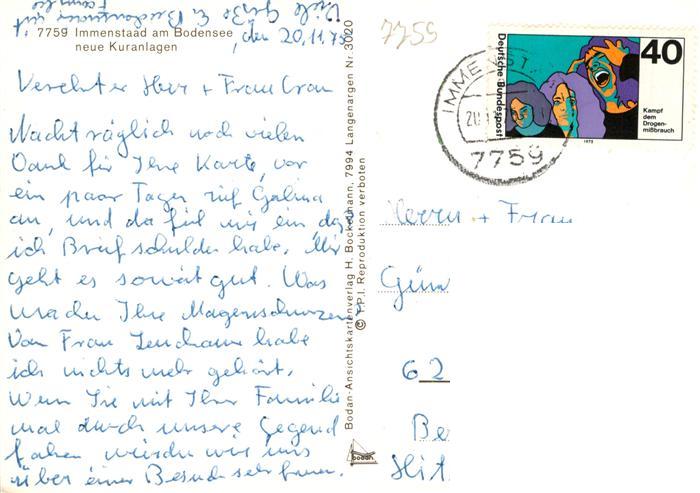 7759 Immenstaad am Bodensee
neue Kuranlagen
, den 20.11.75
Verehrter Herr + Frau
Nachträglich noch vielen
Dank für Ihre Karte, vor
ein paar Tagen rief Galina
an, und da fiel mir ein daß
ich Briefschulden habe. Mir
geht es soweit gut. Was
machen Ihre Magenschmerzen
Von Frau habe
ich nichts mehr gehört.
Wenn Sie mit Ihrer Familie
mal durch unsere Gegend
fahren würden wir uns
über einen Besuch sehr freuen.
Viele Grüße E.
Familie
Bodan-Ansichtskartenverlag H. Bockelmann, 7994 Langenargen Nr. 3020
© T.P.I. Reproduktion verboten
bodan
7759
IMMENST
20.1
7759
Deutsche Bundespost
40
Kampf
dem
Drogen-
mißbrauch
1975
Herrn + Frau
Gün
62
Be
Hit